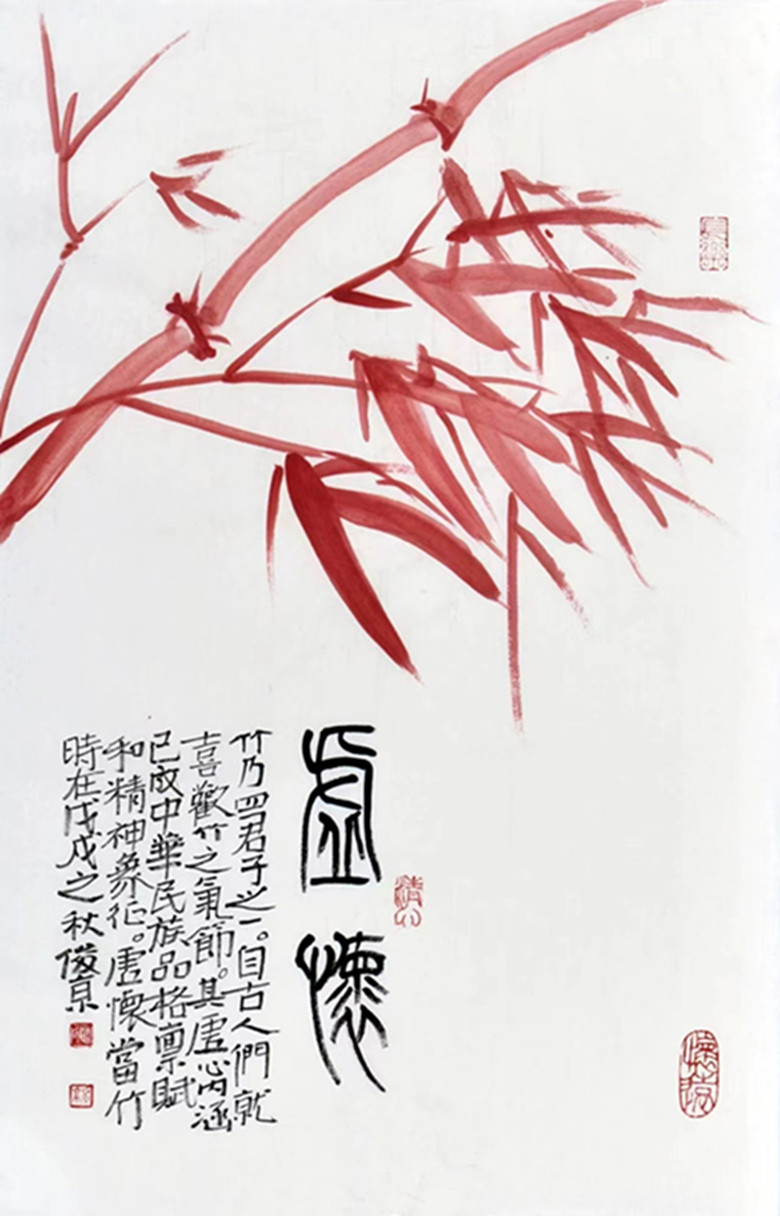 虚懷
竹乃四君子之一。自古人們就
喜歡竹之氣節。其虚心內涵
已成中華民族品格禀賦
和精神象征。虚懷當竹
時在戊戌之秋 俊景